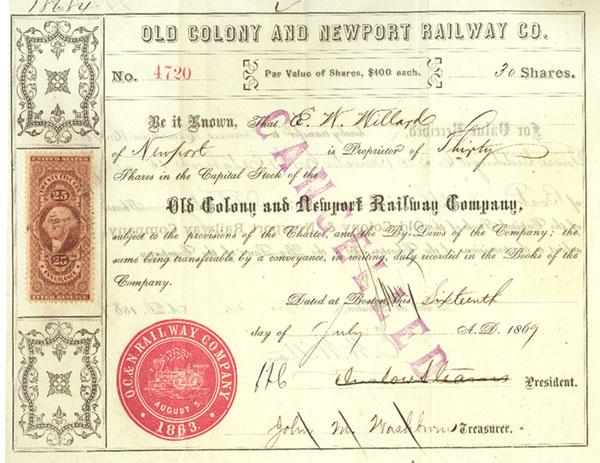 OLD COLONY AND NEWPORT RAILWAY CO.
No. 4720 Par Value of Shares, $100 each. 30 Shares.
Be it Known, That E. W. Willard
of Newport is Proprietor of Thirty
Shares in the Capital Stock of the
Old Colony and Newport Railway Company,
subject to the Provisions of the Charter, and the By-Laws of the Company; the
same being transferable by a conveyance, in writing, duly recorded in the Books of the
Company.
Dated at Boston, this Sixteenth
day of July A.D. 1869
Onslow Stearns President.
John M. Washburn Treasurer.
CANCELLED
UNITED STATES
25
25
INTER. REVENUE
O.C. & N. RAILWAY COMPANY
AUGUST 5.
1863.